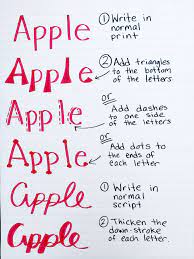 Apple
① Write in
normal
print
Apple
② Add triangles
to the bottom
of the letters
or
Apple
Add dashes
to one side
of the letters
or
Apple
Add dots to
the ends of
each letter
Apple
① Write in
normal
script
Apple
② Thicken the
down-stroke
of each letter.